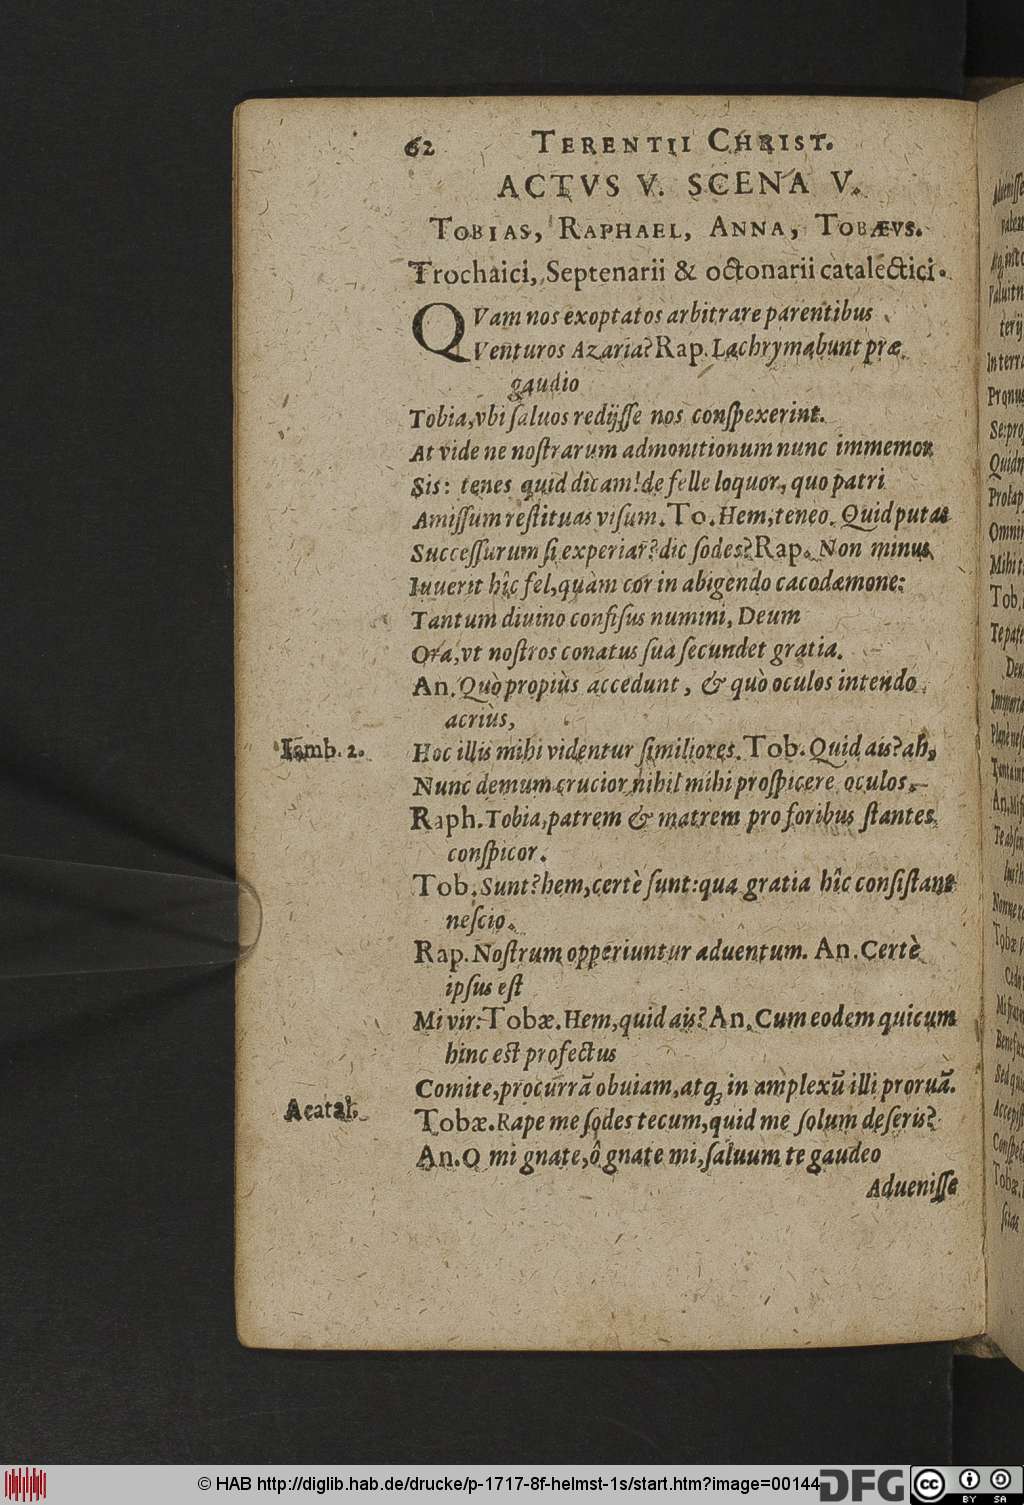 62 TERENTII CHRIST.
ACTVS V. SCENA V.
TOBIAS, RAPHAEL, ANNA, TOBÆVS.
Trochaici, Septenarii & octonarii catalectici.
QVam nos exoptatos arbitrare parentibus
Venturos Azaria? Rap. Lachrymabunt præ
gaudio
Tobia, vbi ſaluos redijſſe nos conſpexerint.
At vide ne noſtrarum admonitionum nunc immemor
Sis: tenes quid dicam! de felle loquor, quo patri
Amiſſum reſtituas viſum. To. Hem, teneo. Quid putas
Succeſſurum ſi experiar? dic ſodes? Rap. Non minus
Iuuerit hîc fel, quàm cor in abigendo cacodæmone:
Tantum diuino confiſus numini, Deum
Ora, vt noſtros conatus ſua ſecundet gratia.
An. Quò propiùs accedunt, & quò oculos intendo
acriùs,
Iamb. 2. Hoc illis mihi videntur ſimiliores. Tob. Quid ais? ah,
Nunc demum crucior nihil mihi proſpicere oculos.
Raph. Tobia, patrem & matrem pro foribus ſtantes
conſpicor.
Tob. Sunt? hem, certè ſunt: qua gratia hîc conſiſtant
neſcio.
Rap. Noſtrum opperiuntur aduentum. An. Certè
ipſus eſt
Mi vir: Tobæ. Hem, quid ais? An. Cum eodem quicum
hinc eſt profectus
Comite, procurrã obuiam, atq; in amplexũ illi proruã.
Acatal. Tobæ. Rape me ſodes tecum, quid me ſolum deſeris?
An. O mi gnate, ô gnate mi, ſaluum te gaudeo
Adueniſſe
© HAB http://diglib.hab.de/drucke/p-1717-8f-helmst-1s/start.htm?image=00144
DFG
cc BY SA